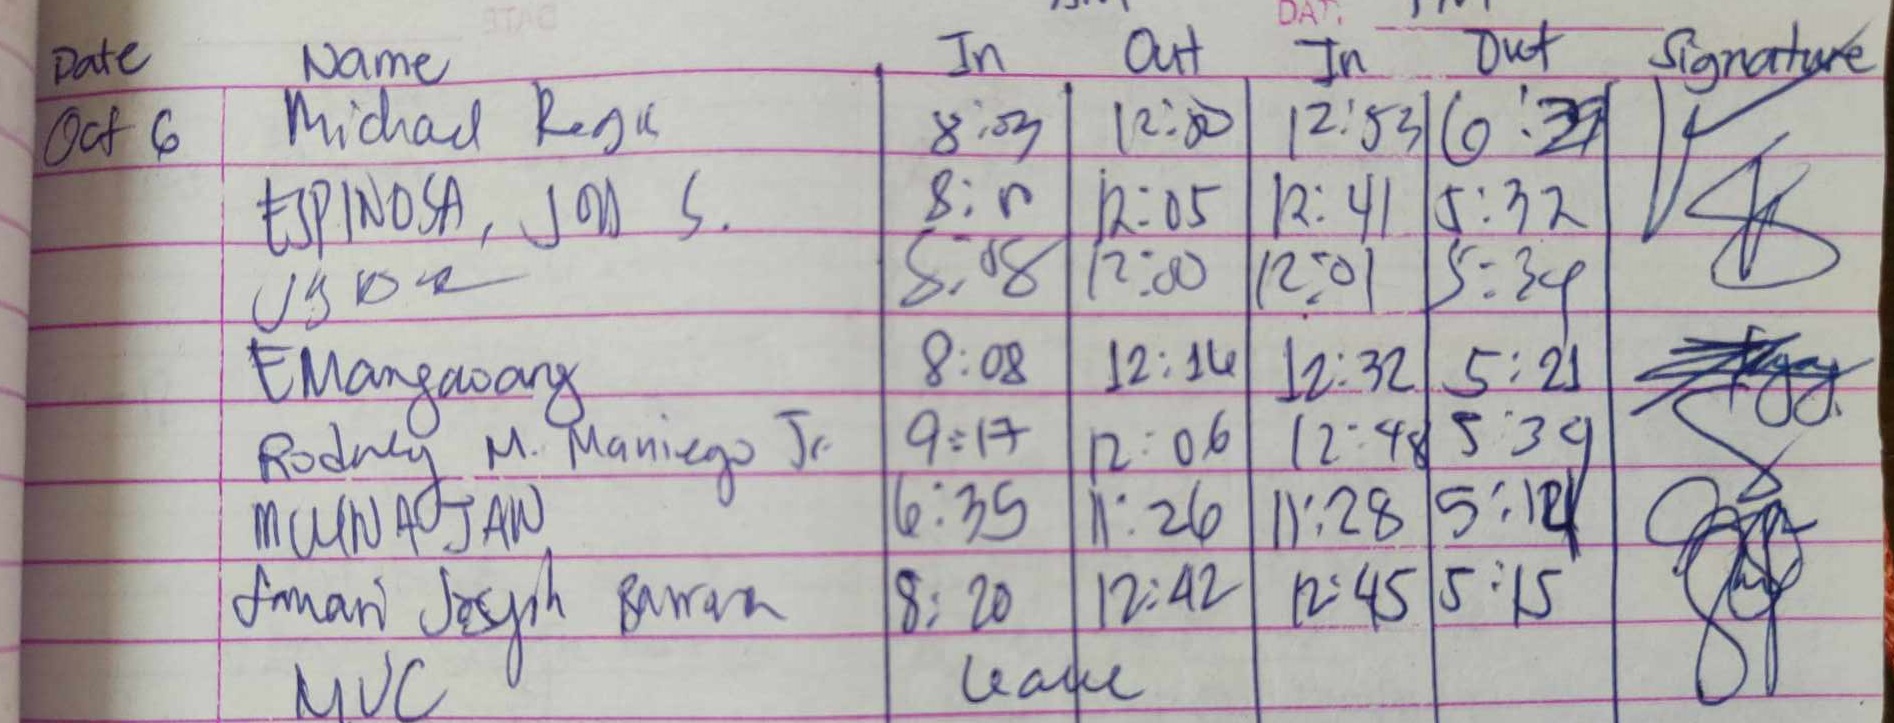 DATE
Date Name In Out In Out Signature
Oct 6 Michael 8:03 12:00 12:53 6:
ESPINOSA, JON S. 8: 12:05 12:41 5:32
8:08 12:00 12:01 5:34
EMangaoang 8:08 12:14 12:32 5:21
Rodney M. Maniego Jr. 9:17 12:06 12:48 5:39
6:35 11:26 11:28 5:12
Joseph 8:20 12:42 12:45 5:15
MVC Leave